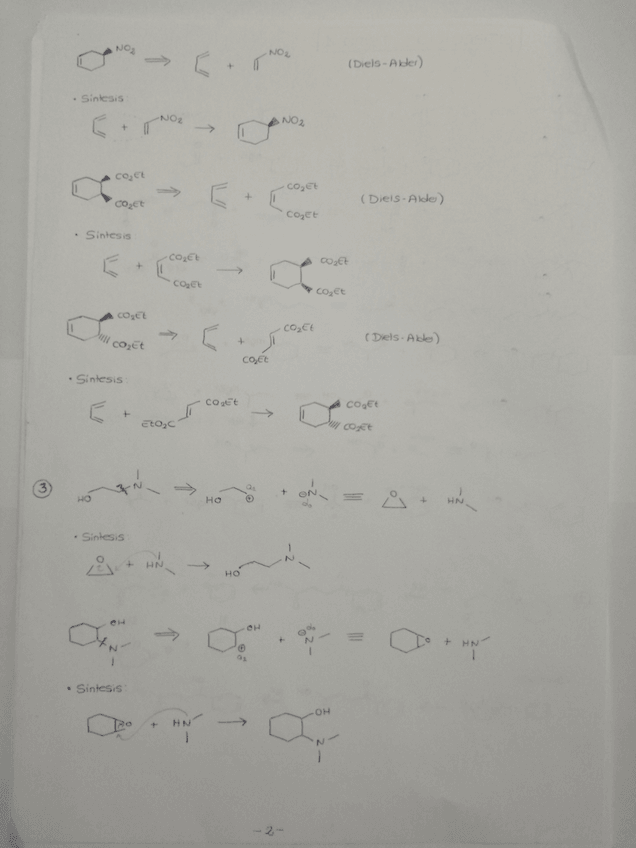 NO₂ ⟹ + NO₂ (Diels-Alder)
• Síntesis
+ NO₂ → NO₂
CO₂Et CO₂Et ⟹ + CO₂Et CO₂Et (Diels-Alder)
• Síntesis
+ CO₂Et CO₂Et → CO₂Et CO₂Et
CO₂Et CO₂Et ⟹ + CO₂Et CO₂Et (Diels-Alder)
• Síntesis:
+ CO₂Et EtO₂C → CO₂Et CO₂Et
③ HO N ⟹ HO ⊕ + ⊖N ≡ O + HN
• Síntesis:
O + HN → HO N
OH N ⟹ OH ⊕ + ⊖N ≡ O + HN
• Síntesis:
O + HN → OH N
-2-